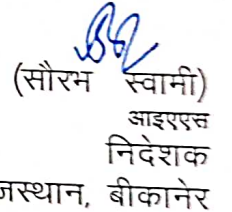 (सौरभ स्वामी)
आइएएस
निदेशक
जस्थान, बीकानेर